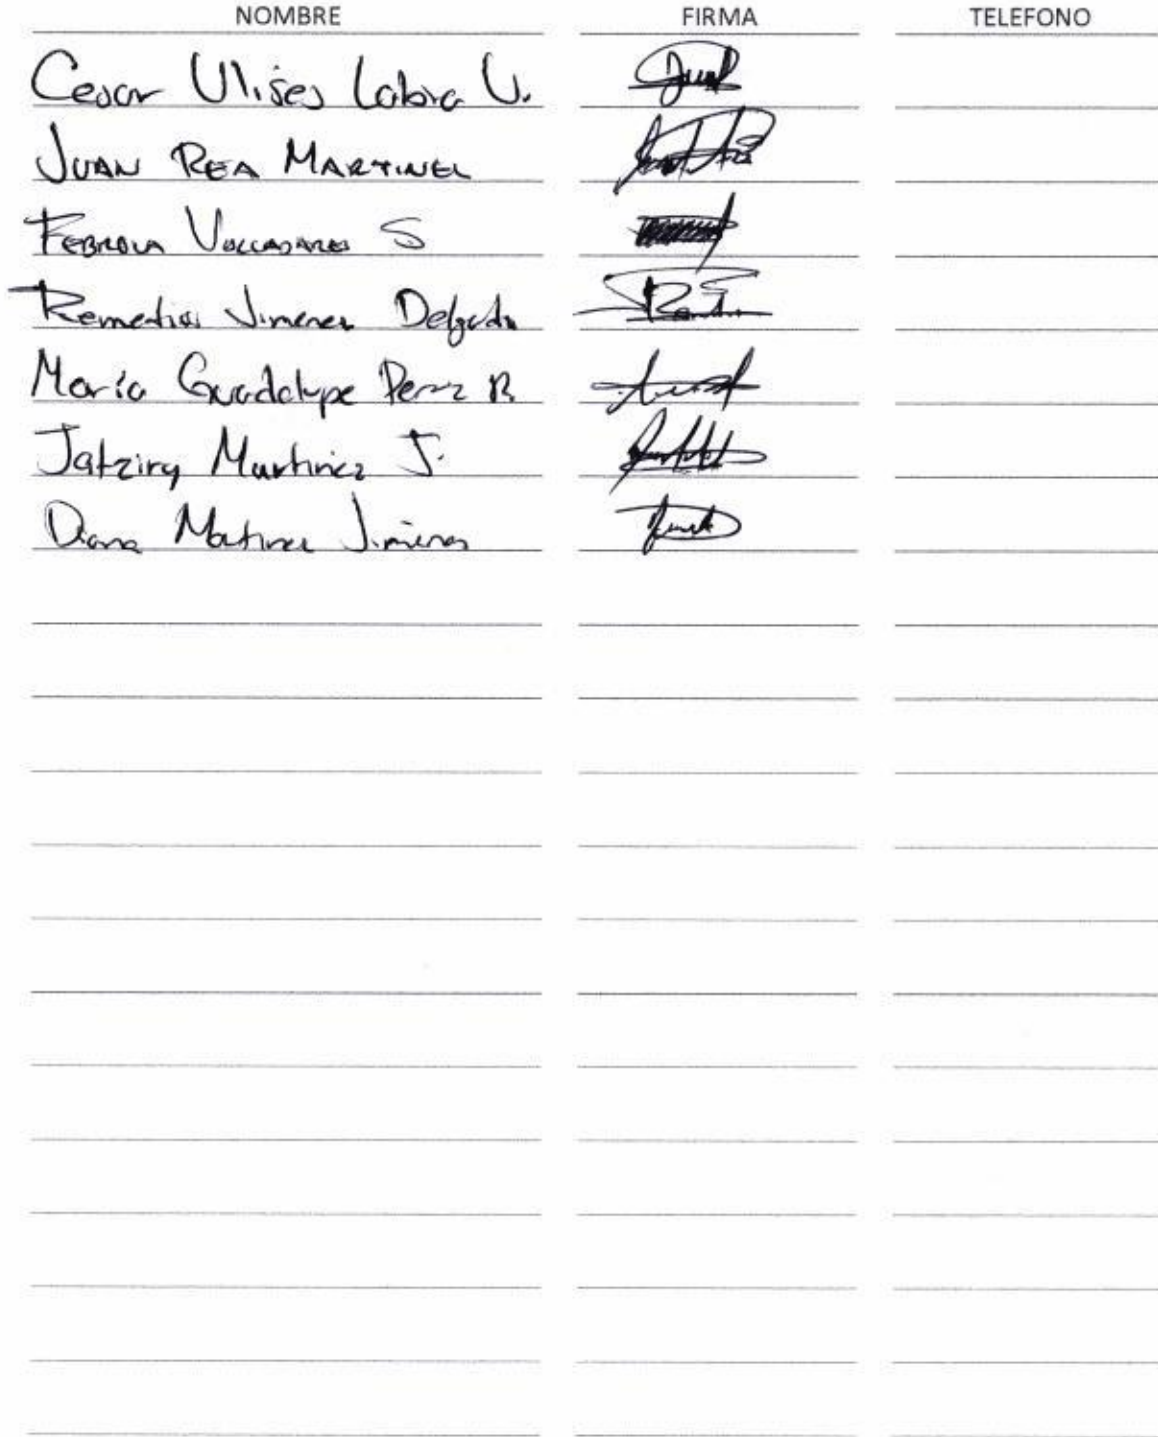 NOMBRE FIRMA TELEFONO
Cesar Ulises Labra U.
JUAN REA MARTINEZ
S
Remedios Jimenez Delgado
María Guadalupe Perez R.
Jatziry Martinez J.
Diana Martinez Jimenez